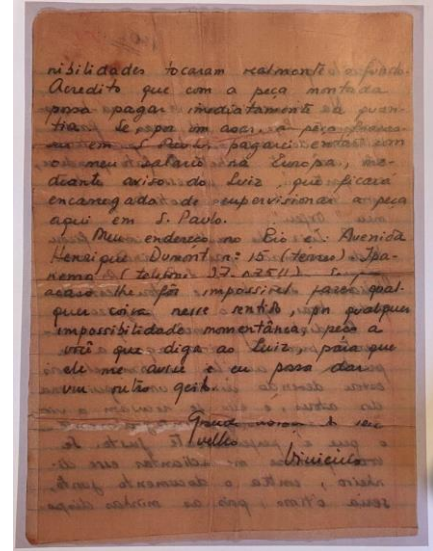 nibilidades tocaram realmente o fundo.
Acredito que com a peça montada
possa pagar imediatamente a quan-
tia. Se, por um azar, a peça
em S. Paulo, pagarei então com
o meu salário na Europa, me-
diante aviso do Luiz, que ficará
encarregado de supervisionar a peça
aqui em S. Paulo.
Meu endereço no Rio é: Avenida
Henrique Dumont nº 15 (terreo) Ipa-
nema (telefone 27. ). Se por
acaso lhe fôr impossível fazer qual-
quer coisa nesse sentido, por qualquer
impossibilidade momentânea, peço a
você que diga ao Luiz, para que
ele me avise e eu possa dar
um outro geito.
Grande do seu
velho
Vinicius